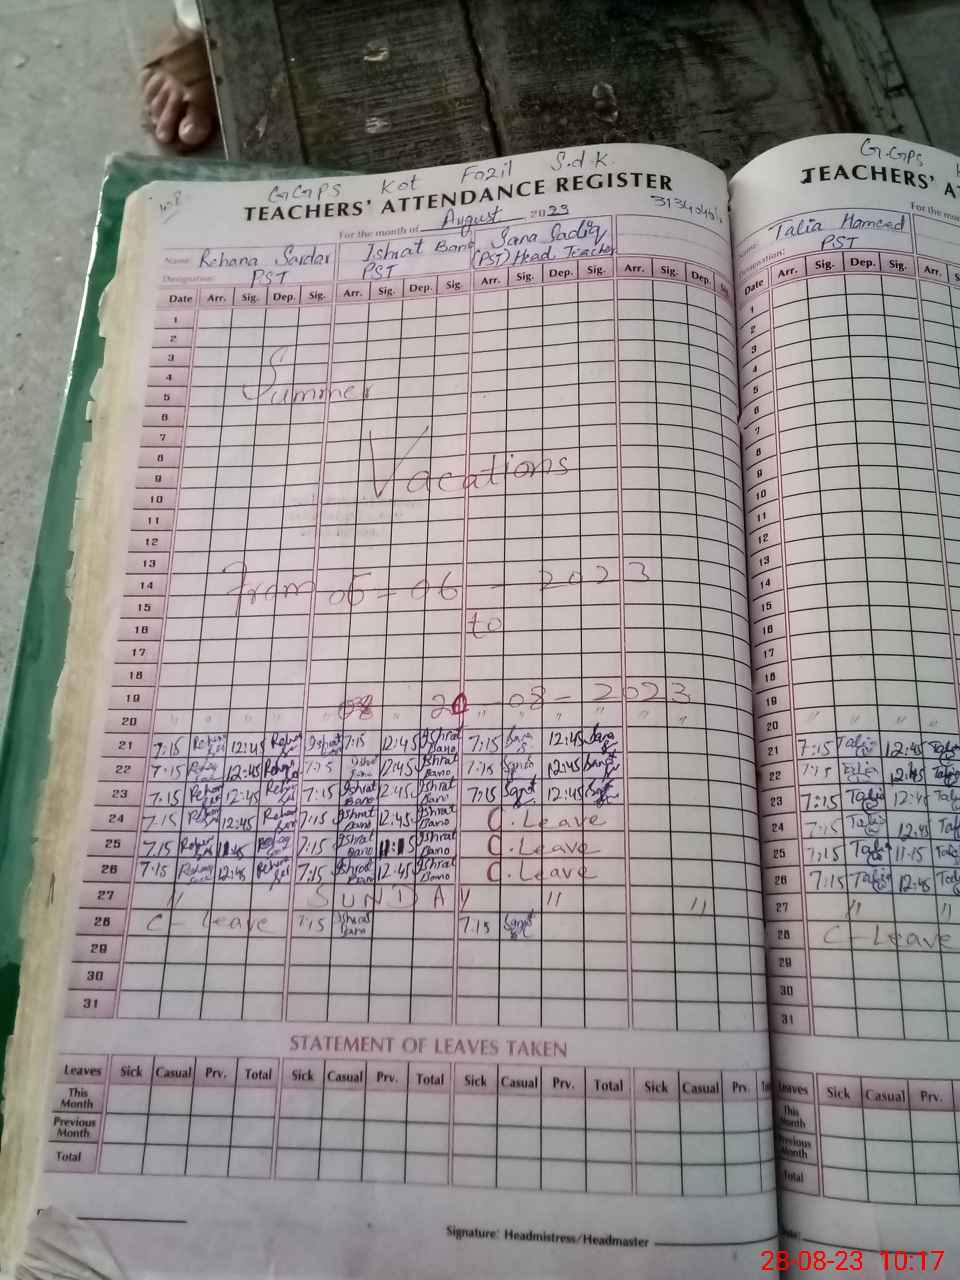 GGPS Kot Fazil S.d.k.
TEACHERS' ATTENDANCE REGISTER
For the month of August 2023
Name: Rehana Sardar Ishrat Bano Sana Sadiq
Designation: PST PST (PST) Head Teacher
Date Arr. Sig. Dep. Sig. Arr. Sig. Dep. Sig. Arr. Sig. Dep. Sig. Arr. Sig. Dep.
1
2
3
4
Summer
5
6
7
8
Vacations
9
10
11
12
13
14
From 05-06-2023
15
16
to
17
18
19
20-08-2023
20 " " " " " " " " " "
21 7:15 Rehana 12:45 Rehana Ishrat 7:15 12:45 Ishrat Bano 7:15 Sana 12:45 Sana
22 7:15 Rehana 12:45 Rehana 7:15 Ishrat Bano 12:45 Ishrat Bano 7:15 12:45
23 7:15 Rehana 12:45 Rehana 7:15 Ishrat Bano 12:45 Ishrat Bano 7:15 12:45
24 7:15 Rehana 12:45 Rehana 7:15 Ishrat Bano 12:45 Ishrat Bano C. Leave
25 7:15 Rehana 7:15 Ishrat Bano 11:15 Ishrat Bano C. Leave
26 7:15 Rehana 12:45 Rehana 7:15 Ishrat Bano 12:45 Ishrat Bano C. Leave
27 " SUNDAY " "
28 C-Leave 7:15 Ishrat Bano 7:15
29
30
31
STATEMENT OF LEAVES TAKEN
Leaves Sick Casual Prv. Total Sick Casual Prv. Total Sick Casual Prv. Total Sick Casual Prv.
This Month
Previous Month
Total
Signature: Headmistress/Headmaster
GGPS
TEACHERS' A
For the mon
Name: Talia Hameed
Designation: PST
Date Arr. Sig. Dep. Sig. Arr.
1
2
3
4
5
6
7
8
9
10
11
12
13
14
15
16
17
18
19
20 " " " "
21 7:15 Talia 12:45 Talia
22 7:15 Talia 12:45 Talia
23 7:15 Talia 12:45 Talia
24 7:15 Talia 12:45 Talia
25 7:15 Talia 11:15 Talia
26 7:15 Talia 12:45 Talia
27 " "
28 C-Leave
29
30
31
Leaves Sick Casual Prv.
This Month
Previous Month
Total
28-08-23 10:17